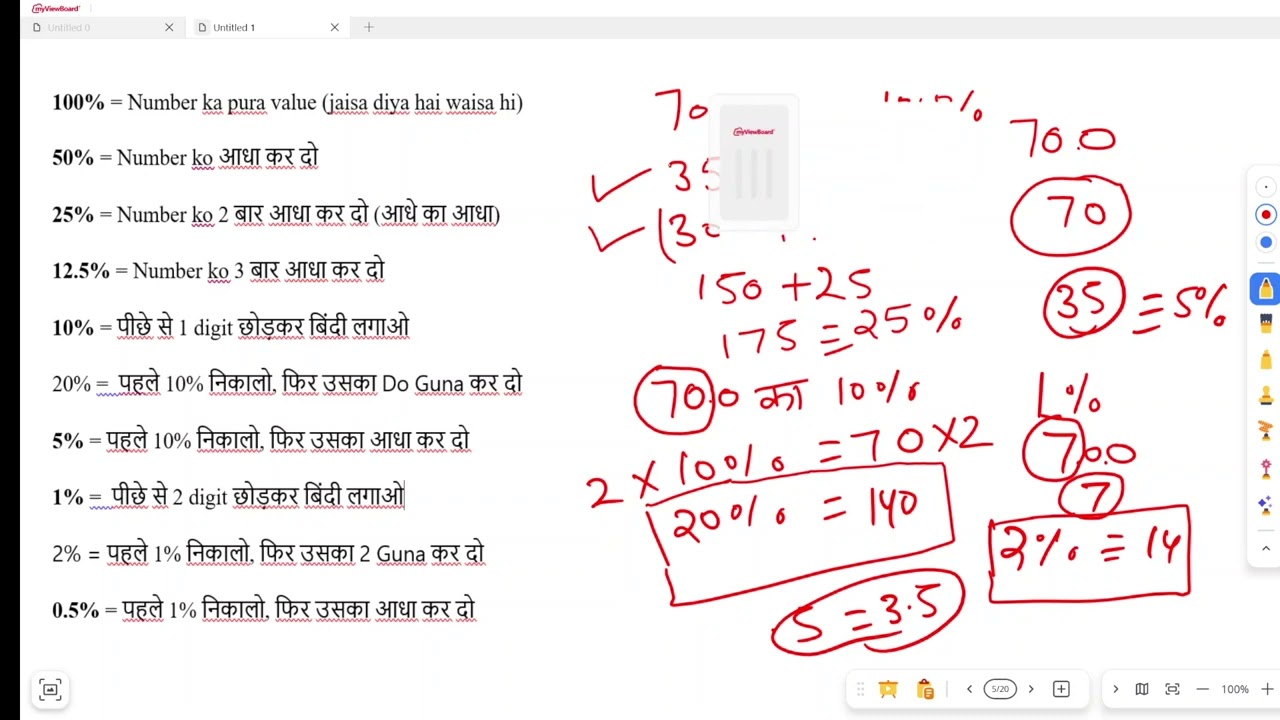 myViewBoard
Untitled 0
Untitled 1
100% = Number ka pura value (jaisa diya hai waisa hi)
50% = Number ko आधा कर दो
25% = Number ko 2 बार आधा कर दो (आधे का आधा)
12.5% = Number ko 3 बार आधा कर दो
10% = पीछे से 1 digit छोड़कर बिंदी लगाओ
20% = पहले 10% निकालो, फिर उसका Do Guna कर दो
5% = पहले 10% निकालो, फिर उसका आधा कर दो
1% = पीछे से 2 digit छोड़कर बिंदी लगाओ
2% = पहले 1% निकालो, फिर उसका 2 Guna कर दो
0.5% = पहले 1% निकालो, फिर उसका आधा कर दो
70
myViewBoard
35
(30
150 + 25
175 = 25%
70.0 का 10%
2 × 10% = 70 × 2
20% = 140
5 = 3.5
70.0
70
35 = 5%
1%
7.0.0
7
2% = 14
5/20
100%